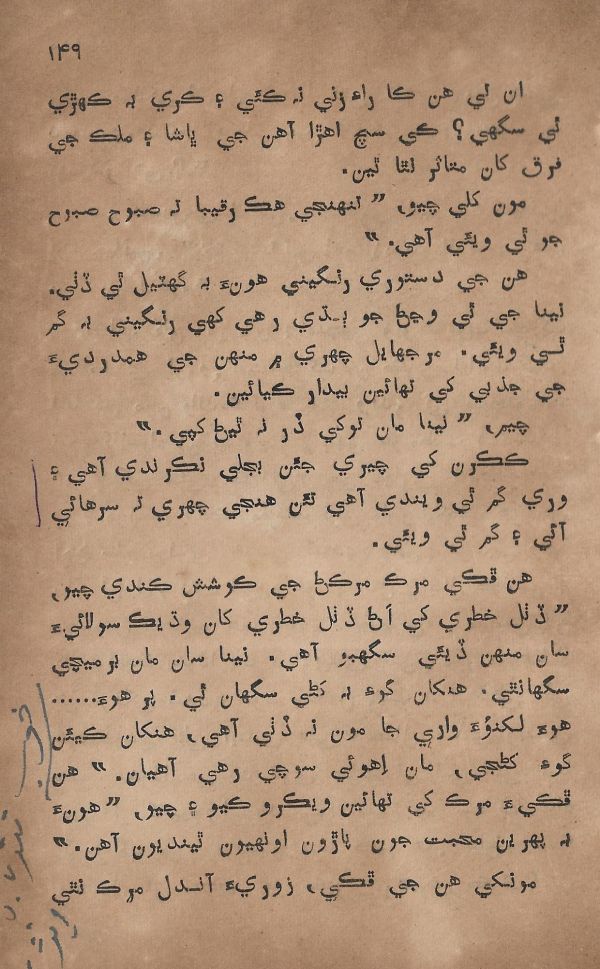 ۱۴۹
ان لي هن کا راءِ زني نہ ڪئي ۽ ڪري بہ ڪهڙي
ٿي سگهي؟ ڪي سچ اهڙا آهن جي ڀاشا ۽ ملڪ جي
فرق کان متاثر نٿا ٿين.
مون کلي چيو، ”تنهنجي هڪ رقيبا تہ صبوح صبوح
جو ٿي ويئي آهي.“
هن جي دستوري رنگيني هونءَ بہ گهٽيل ٿي ڏٺي.
نينا جي ٿي وڃڻ جو ٻڌي رهي کهي رنگيني بہ گم
ٿي ويئي. مرجهايل چهري ۾ منهن جي همدرديءَ
جي جذبي کي تهائين بيدار ڪيائين.
چيم، ”نينا مان توکي ڊر نہ ٿيڻ کپي.“
ڪڪرن کي چيري جئن بجلي نڪرندي آهي ۽
وري گم ٿي ويندي آهي تئن هنجي چهري تہ سرهائي
آئي ۽ گم ٿي ويئي.
هن ڦڪي مرڪ مرڪڻ جي ڪوشش ڪندي چيو،
”ڏٺل خطري کي اَڻ ڏٺل خطري کان وڌيڪ سولائيءَ
سان منهن ڏيئي سگهبو آهي. نينا سان مان پرميچي
سگهانٿي. هنکان گوءِ بہ کٽي سگهان ٿي. پر هوءَ......
هوءَ لکنؤءَ واري جا مون نہ ڏٺي آهي، هنکان ڪيئن
گوءِ کٽجي، مان اِهوئي سوچي رهي آهيان.“ هن
ڦڪيءَ مرڪ کي تهائين ويڪرو ڪيو ۽ چيو، ”هونءَ
بہ پهرين محبت جون پاڙون اونهيون ٿينديون آهن.“
مونکي هن جي ڦڪي، زوريءَ آندل مرڪ نٿي